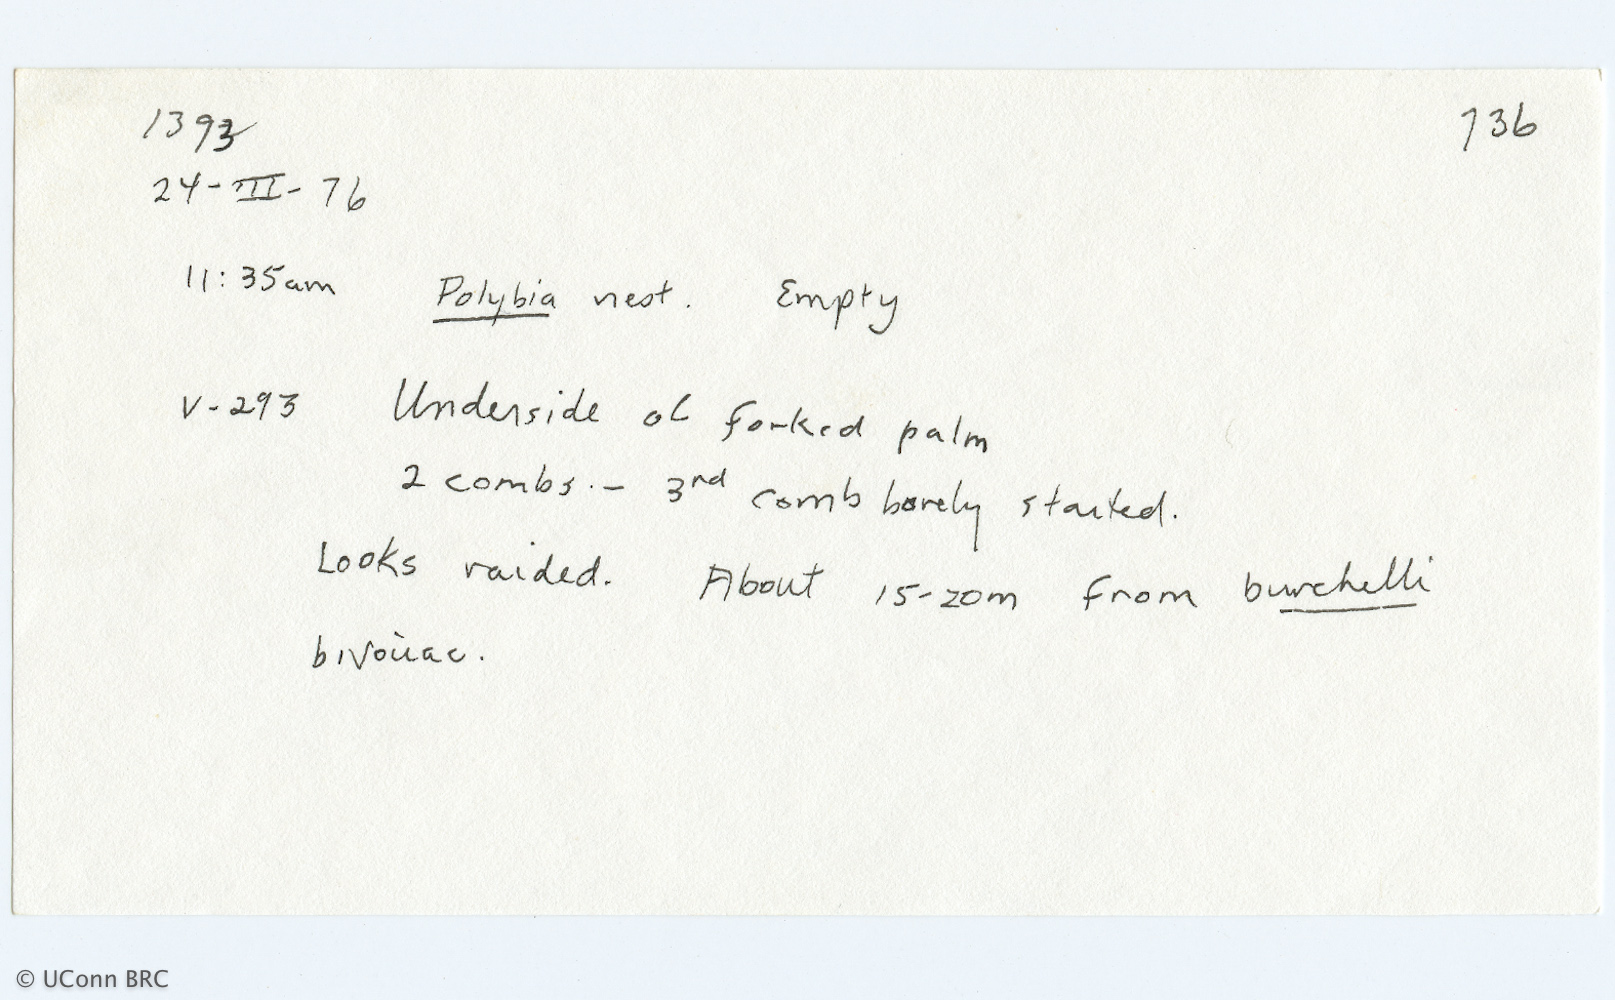 1393
736
24-III-76
11:35am Polybia nest. Empty
V-293 Underside of forked palm
2 combs.- 3rd comb barely started.
Looks raided. About 15-20m from burchelli
bivouac.
© UConn BRC